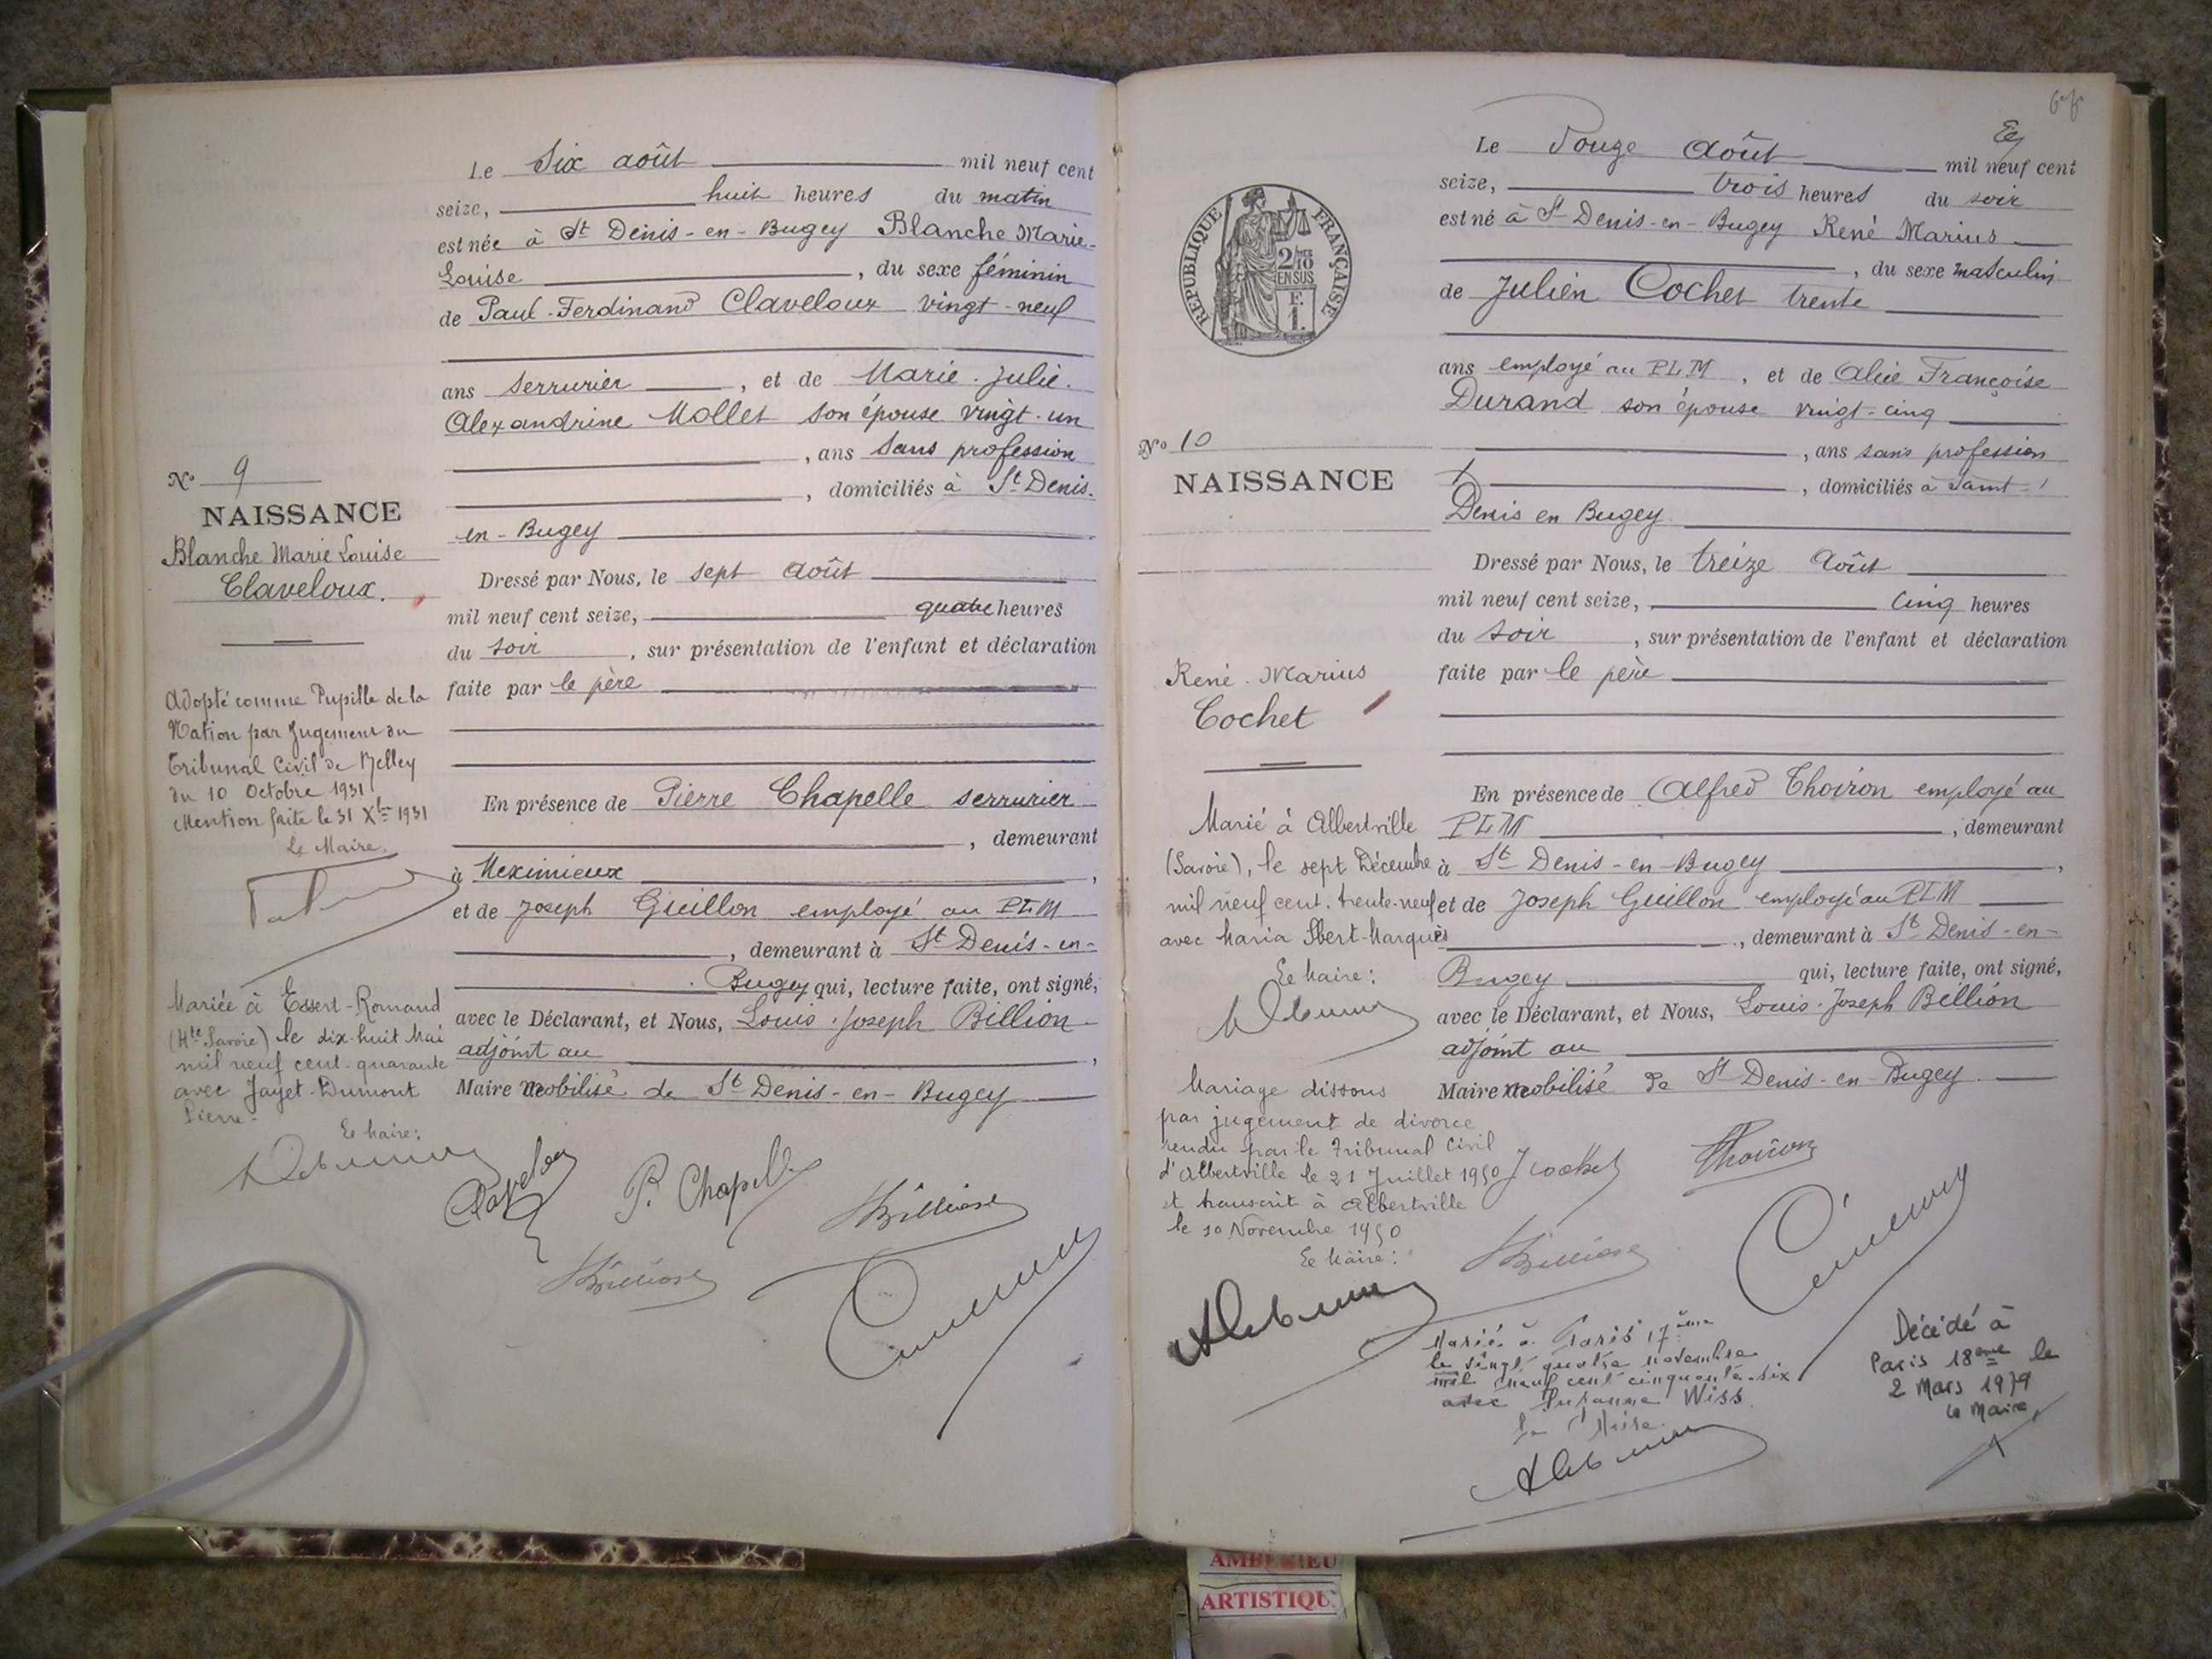 Le Six août mil neuf cent
seize, huit heures du matin
est née à St Denis-en-Bugey Blanche Marie-
Louise , du sexe féminin
de Paul-Ferdinand Claveloux vingt-neuf
ans serrurier , et de Marie-Julie-
Alexandrine Mollet son épouse vingt-un
, ans sans profession
, domiciliés à St Denis-
en-Bugey
Dressé par Nous, le sept août
mil neuf cent seize, quatre heures
du soir , sur présentation de l'enfant et déclaration
faite par le père
En présence de Pierre Chapelle serrurier
, demeurant
à Meximieux ,
et de Joseph Guillon employé au PLM
, demeurant à St Denis-en-
Bugey qui, lecture faite, ont signé,
avec le Déclarant, et Nous, Louis-Joseph Billion
adjoint au ,
Maire mobilisé de St Denis-en-Bugey
No 9
NAISSANCE
Blanche Marie Louise
Claveloux.
Adopté comme Pupille de la
Nation par Jugement du
Tribunal Civil de Belley
du 10 Octobre 1931
Mention faite le 31 Xbre 1931
Le Maire.
Mariée à Essert-Romand
(Hte Savoie) le dix-huit Mai
mil neuf cent quarante
avec Jayet-Dumont
Pierre.
Le Maire:
P. Chapelle
Billion
Billion
Le Douze Août mil neuf cent
seize, trois heures du soir
est né à St Denis-en-Bugey René Marius
, du sexe masculin
de Julien Cochet trente
ans employé au PLM , et de Alice Françoise
Durand son épouse vingt-cinq
, ans sans profession
, domiciliés à Saint-
Denis en Bugey
Dressé par Nous, le treize Août
mil neuf cent seize, cinq heures
du soir , sur présentation de l'enfant et déclaration
faite par le père
En présence de Alfred Thoiron employé au
PLM , demeurant
à St Denis-en-Bugey ,
et de Joseph Guillon employé au PLM
, demeurant à St Denis-en-
Bugey qui, lecture faite, ont signé,
avec le Déclarant, et Nous, Louis-Joseph Billion
adjoint au
Maire mobilisé de St Denis-en-Bugey
REPUBLIQUE FRANÇAISE
2/10
EN SUS
F.
1.
No 10
NAISSANCE
René-Marius
Cochet
Marié à Albertville
(Savoie), le sept Décembre
mil neuf cent trente-neuf
avec Maria Ibert-Marquès
Le Maire:
Mariage dissous
par jugement de divorce
rendu par le Tribunal Civil
d'Albertville le 21 Juillet 1950
et transcrit à Albertville
le 10 Novembre 1950
Le Maire:
J Cochet
Thoiron
Billion
Marié à Paris 17ème
le vingt quatre novembre
mil neuf cent cinquante-six
avec Suzanne Wiss
Le Maire
Décédé à
Paris 18ème le
2 Mars 1979
Le Maire
AMBERIEU
ARTISTIQU